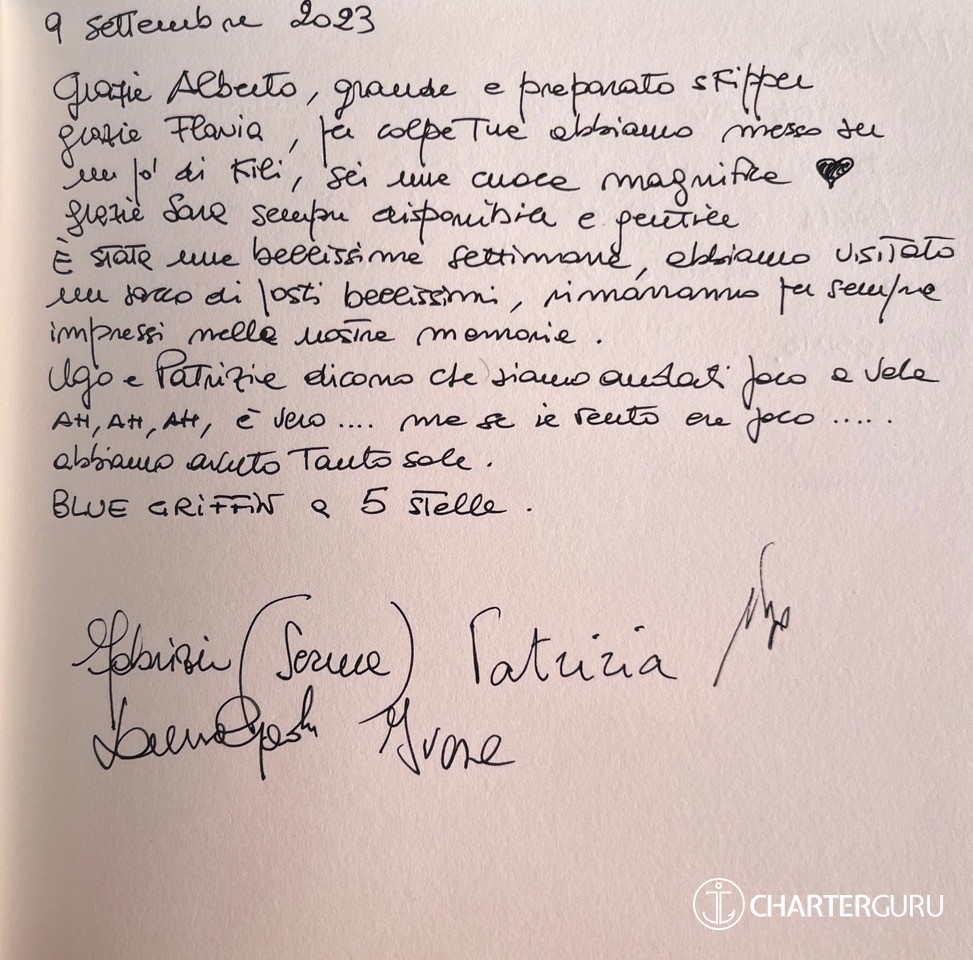 9 settembre 2023
Grazie Alberto, grande e preparato skipper
grazie Flavia, per colpa Tua abbiamo messo su
un po' di Kili, sei una cuoca magnifica ♥
grazie Sara sempre disponibile e gentile
È stata una bellissima settimana, abbiamo visitato
un sacco di posti bellissimi, rimarranno per sempre
impressi nella nostra memoria.
Ugo e Patrizia dicono che siamo andati poco a vela
AH, AH, AH, è vero .... ma se il vento era poco .....
abbiamo avuto Tanto sole.
BLUE GRIFFIN a 5 stelle.
Patrizia
CHARTERGURU